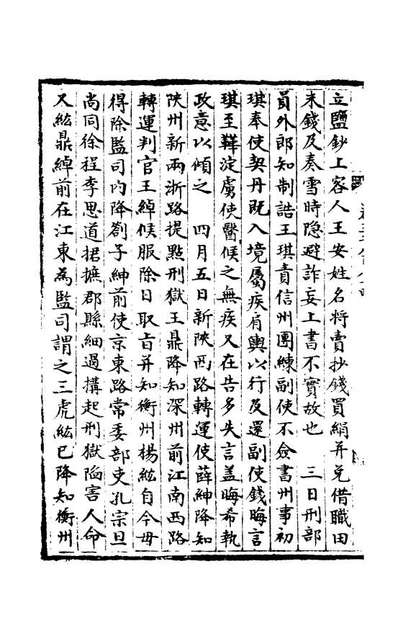 立鹽鈔上客人王安姓名將賣抄錢買絹并兑借職田
末錢及奏雪時隐避詐妄上書不實故也　三日刑部
員外郎知制誥王琪責信州團練副使不僉書州事初
琪奉使契丹既入境屬疾肩輿以行及還副使錢晦言
琪至韡淀虜使醫候之無疾又在告多失言盖晦希執
政意以傾之　四月五日新陝西路轉運使薛紳降知
陜州新兩浙路提㸃刑獄王鼎降知深州前江南西路
轉運判官王綽候服除日取旨并知衡州楊紘自今毋
得除監司内降劄子紳前使京東路常委部吏孔宗旦
尚同徐程李思道捃摭郡縣細過搆起刑獄陷害人命
又紘鼎綽前在江東為監司謂之三虎紘已降知衡州